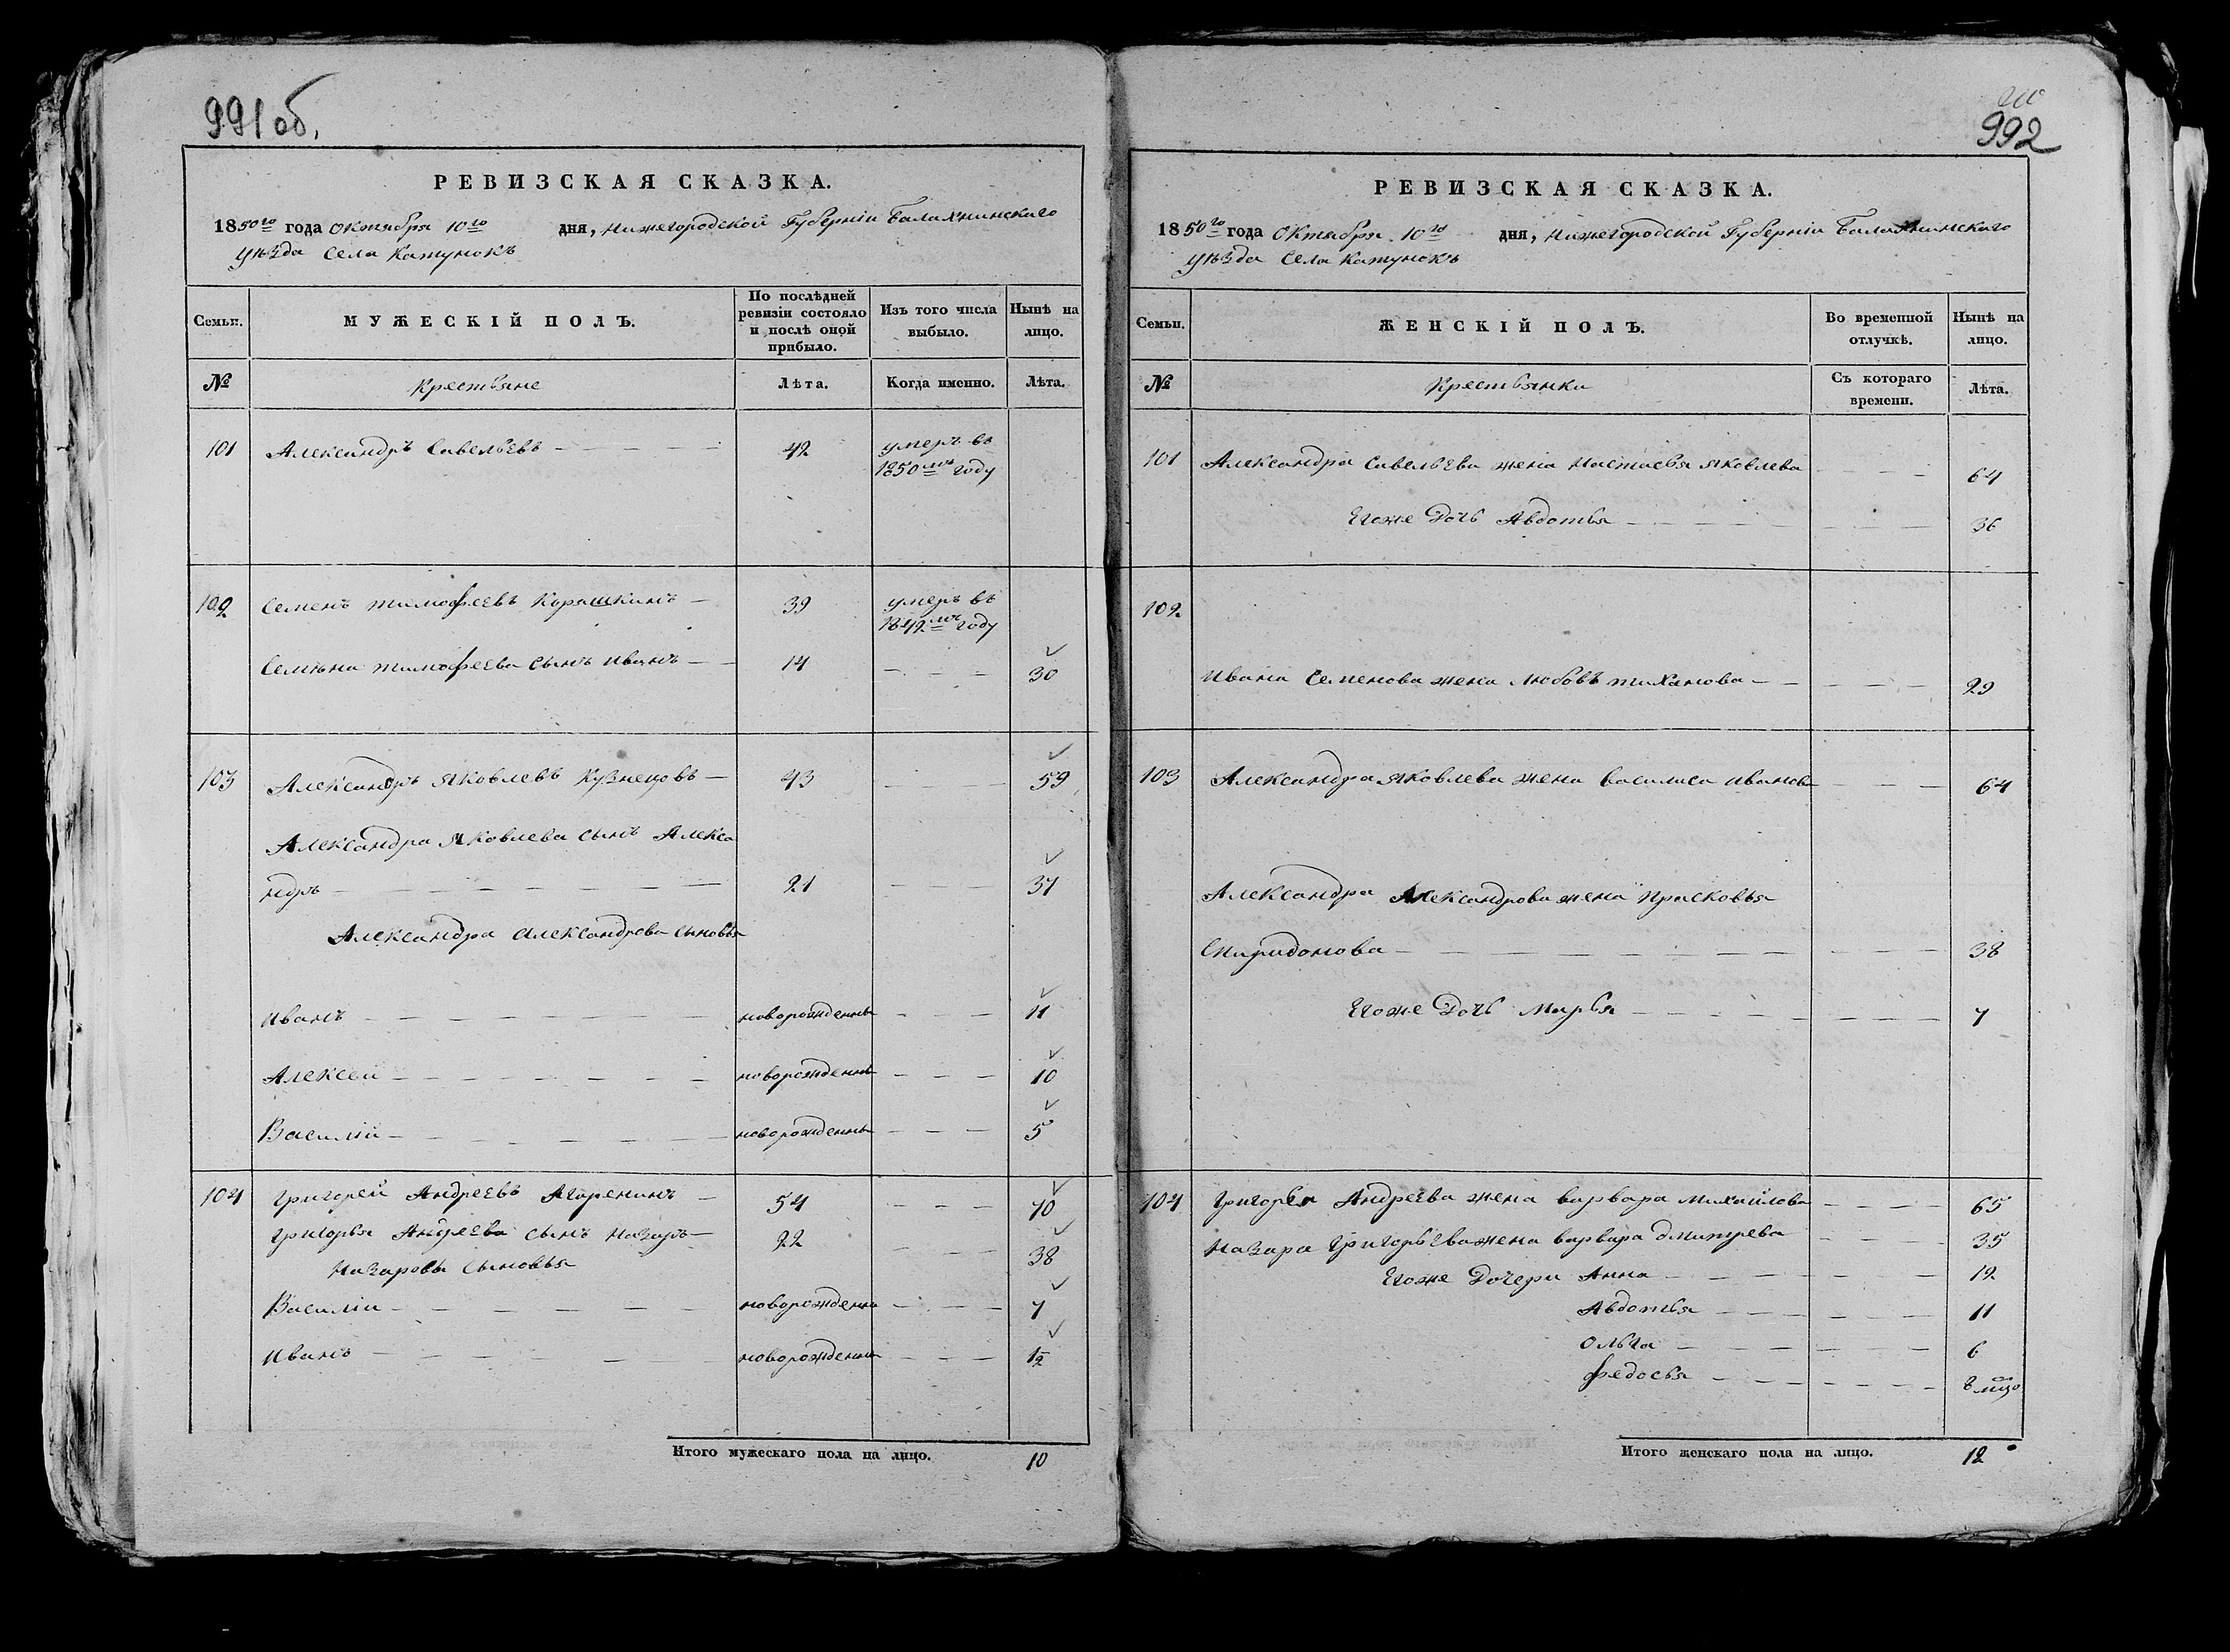 991 об.
РЕВИЗСКАЯ СКАЗКА.
1850го года Октября 10го дня, Нижегородской Губерніи Балахнинскаго
уѣзда Села Катунокъ
Семьи.
МУЖЕСКІЙ ПОЛЪ.
По послѣдней
ревизіи состояло
и послѣ оной
прибыло.
Изъ того числа
выбыло.
Нынѣ на
лицо.
№ Крестьяне Лѣта. Когда именно. Лѣта.
101 Александръ Савельевъ 42 умеръ въ
1850мъ году
102 Семенъ Тимофеевъ Корашкинъ 39 умеръ въ
1842мъ году
Семѣна Тимофеева сынъ Иванъ 14 30
103 Александръ Яковлевъ Кузнецовъ 43 59
Александра Яковлева сынъ Алекса
ндръ 21 37
Александра Александрова сыновья
Иванъ новорожденны 11
Алексей новорожденны 10
Василій новорожденны 5
104 Григорей Андреевъ Агоренинъ 54 70
Григорья Андреева сынъ Назаръ 22 38
Назаровы сыновья
Василіи новорожденны 7
Иванъ новорожденны 1/2
Итого мужескаго пола на лицо. 10
992
РЕВИЗСКАЯ СКАЗКА.
1850го года Октября 10го дня, Нижегородской Губерніи Балахнинскаго
уѣзда Села Катунокъ
Семьи.
ЖЕНСКІЙ ПОЛЪ.
Во временной
отлучкѣ.
Нынѣ на
лицо.
№ Крестьянки Съ котораго
времени. Лѣта.
101 Александра Савельева жена Настасья Яковлева 64
Егоже Дочь Авдотья 36
102
Ивана Семенова жена Любовь Тиханова 29
103 Александра Яковлева жена Василиса Иванова 64
Александра Александрова жена Прасковья
Спиридонова 38
Егоже Дочь Марья 7
104 Григорья Андреева жена Варвара Михайлова 65
Назара Григорьева жена Варвара Дмитрева 35
Егоже Дочери Анна 12
Авдотья 11
Ольга 6
Федосья 8 мцо
Итого женскаго пола на лицо. 12